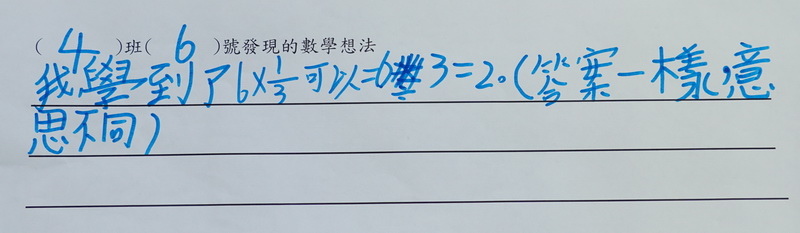 (4)班(6)號發現的數學想法
我學到了6×1/3可以=6÷3=2。(答案一樣,意
思不同)